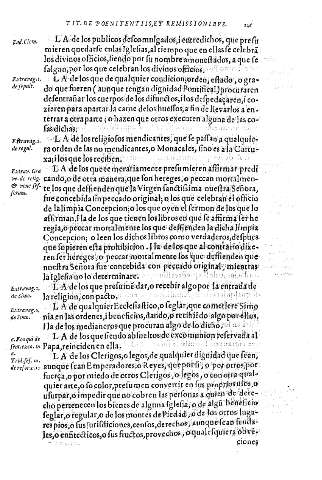 TIT. DE POENITENTIIS, ET REMISSIONIBVS.
LA de los publicos descomulgados, i entredichos, que presu
mieren quedarse en las Iglesias, al tiempo que en ellas se celebrā
los divinos oficios, siendo por su nombre amonestados, a que se
salgan, por los que celebran los divinos oficios.
LA de los que de qualquier condicion, orden, estado, o gra-
do que fueren (aunque tengan dignidad Pontifical) procuraren
desentrañar los cuerpos de los difuntos, i los despedaçaren, i co
zieren para apartar la carne de los huessos, a fin de llevarlos a en-
terrar a otra parte; o hazen que otros executen alguna de las co
sas dichas.
LA de los religiosos mendicantes, que se passan a qualquie-
ra orden de las no mendicantes, o Monacales, sino es a la Cartu-
xa; i los que los reciben.
LA de los que temerariamente presumieren afirmar predi
cando, o de otra manera, que son hereges, o peccan mortalmen-
te los que defienden que la Virgen santissima nuestra Señora,
fue concebida sin peccado original; o los que celebran el oficio
de la limpia Concepcion; o los que oyen el sermon de los que lo
affirman. I la de los que tienen los libros en que se affirma ser he
regia, o peccar mortalmente los que defienden la dicha limpia
Concepcion; o leen los dichos libros como verdaderos, despues
que supieren esta prohibicion. I la de los que al contrario dixe-
ren ser hereges, o peccar mortalmente los que defienden que
nuestra Señora fue concebida con peccado original, mientras
la Iglesia no lo determinare.
LA de los que presumē dar, o recibir algo por la entrada de
la religion, con pacto.
LA de qualquier Ecclesiastico, o seglar, que cometiere Simo
nia en las ordenes, i beneficios, dando, o recibiēdo algo por ellos,
I la de los medianeros que procuran algo de lo dicho.
LA de los que siendo absueltos de excomunion reservada al
Papa, reinciden en ella.
LA de los Clerigos, o legos, de qualquier dignidad que sean,
aunque sean Emperadores, o Reyes, que por si, o por otros, por
fuerça, o por miedo de otros Clerigos, o legos, o con otra qual-
quier arte, o so color, presumen convertir en sus proprios usos, o
usurpar, o impedir que no cobren las personas a quien de dere-
cho pertenecen los bienes de alguna Iglesia, o de algū beneficio
seglar, o regular, o de los montes de Piedad, o de los otros luga-
res pios, o sus jurisdiciones, censos, derechos, aunque sean feuda-
les, o enfiteoticos, o sus fructos, provechos, o qualesquiera obvē-
ciones